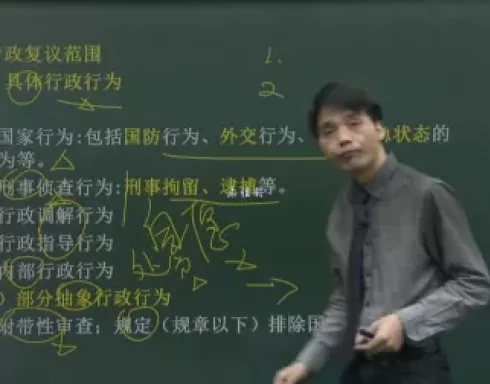 行政复议范围
1.
具体行政行为
2
国家行为:包括国防行为、外交行为、 状态的
为等。
刑事侦查行为:刑事拘留、逮捕等。
行政调解行为
行政指导行为
内部行政行为
）部分抽象行政行为
附带性审查；规定（规章以下）排除国